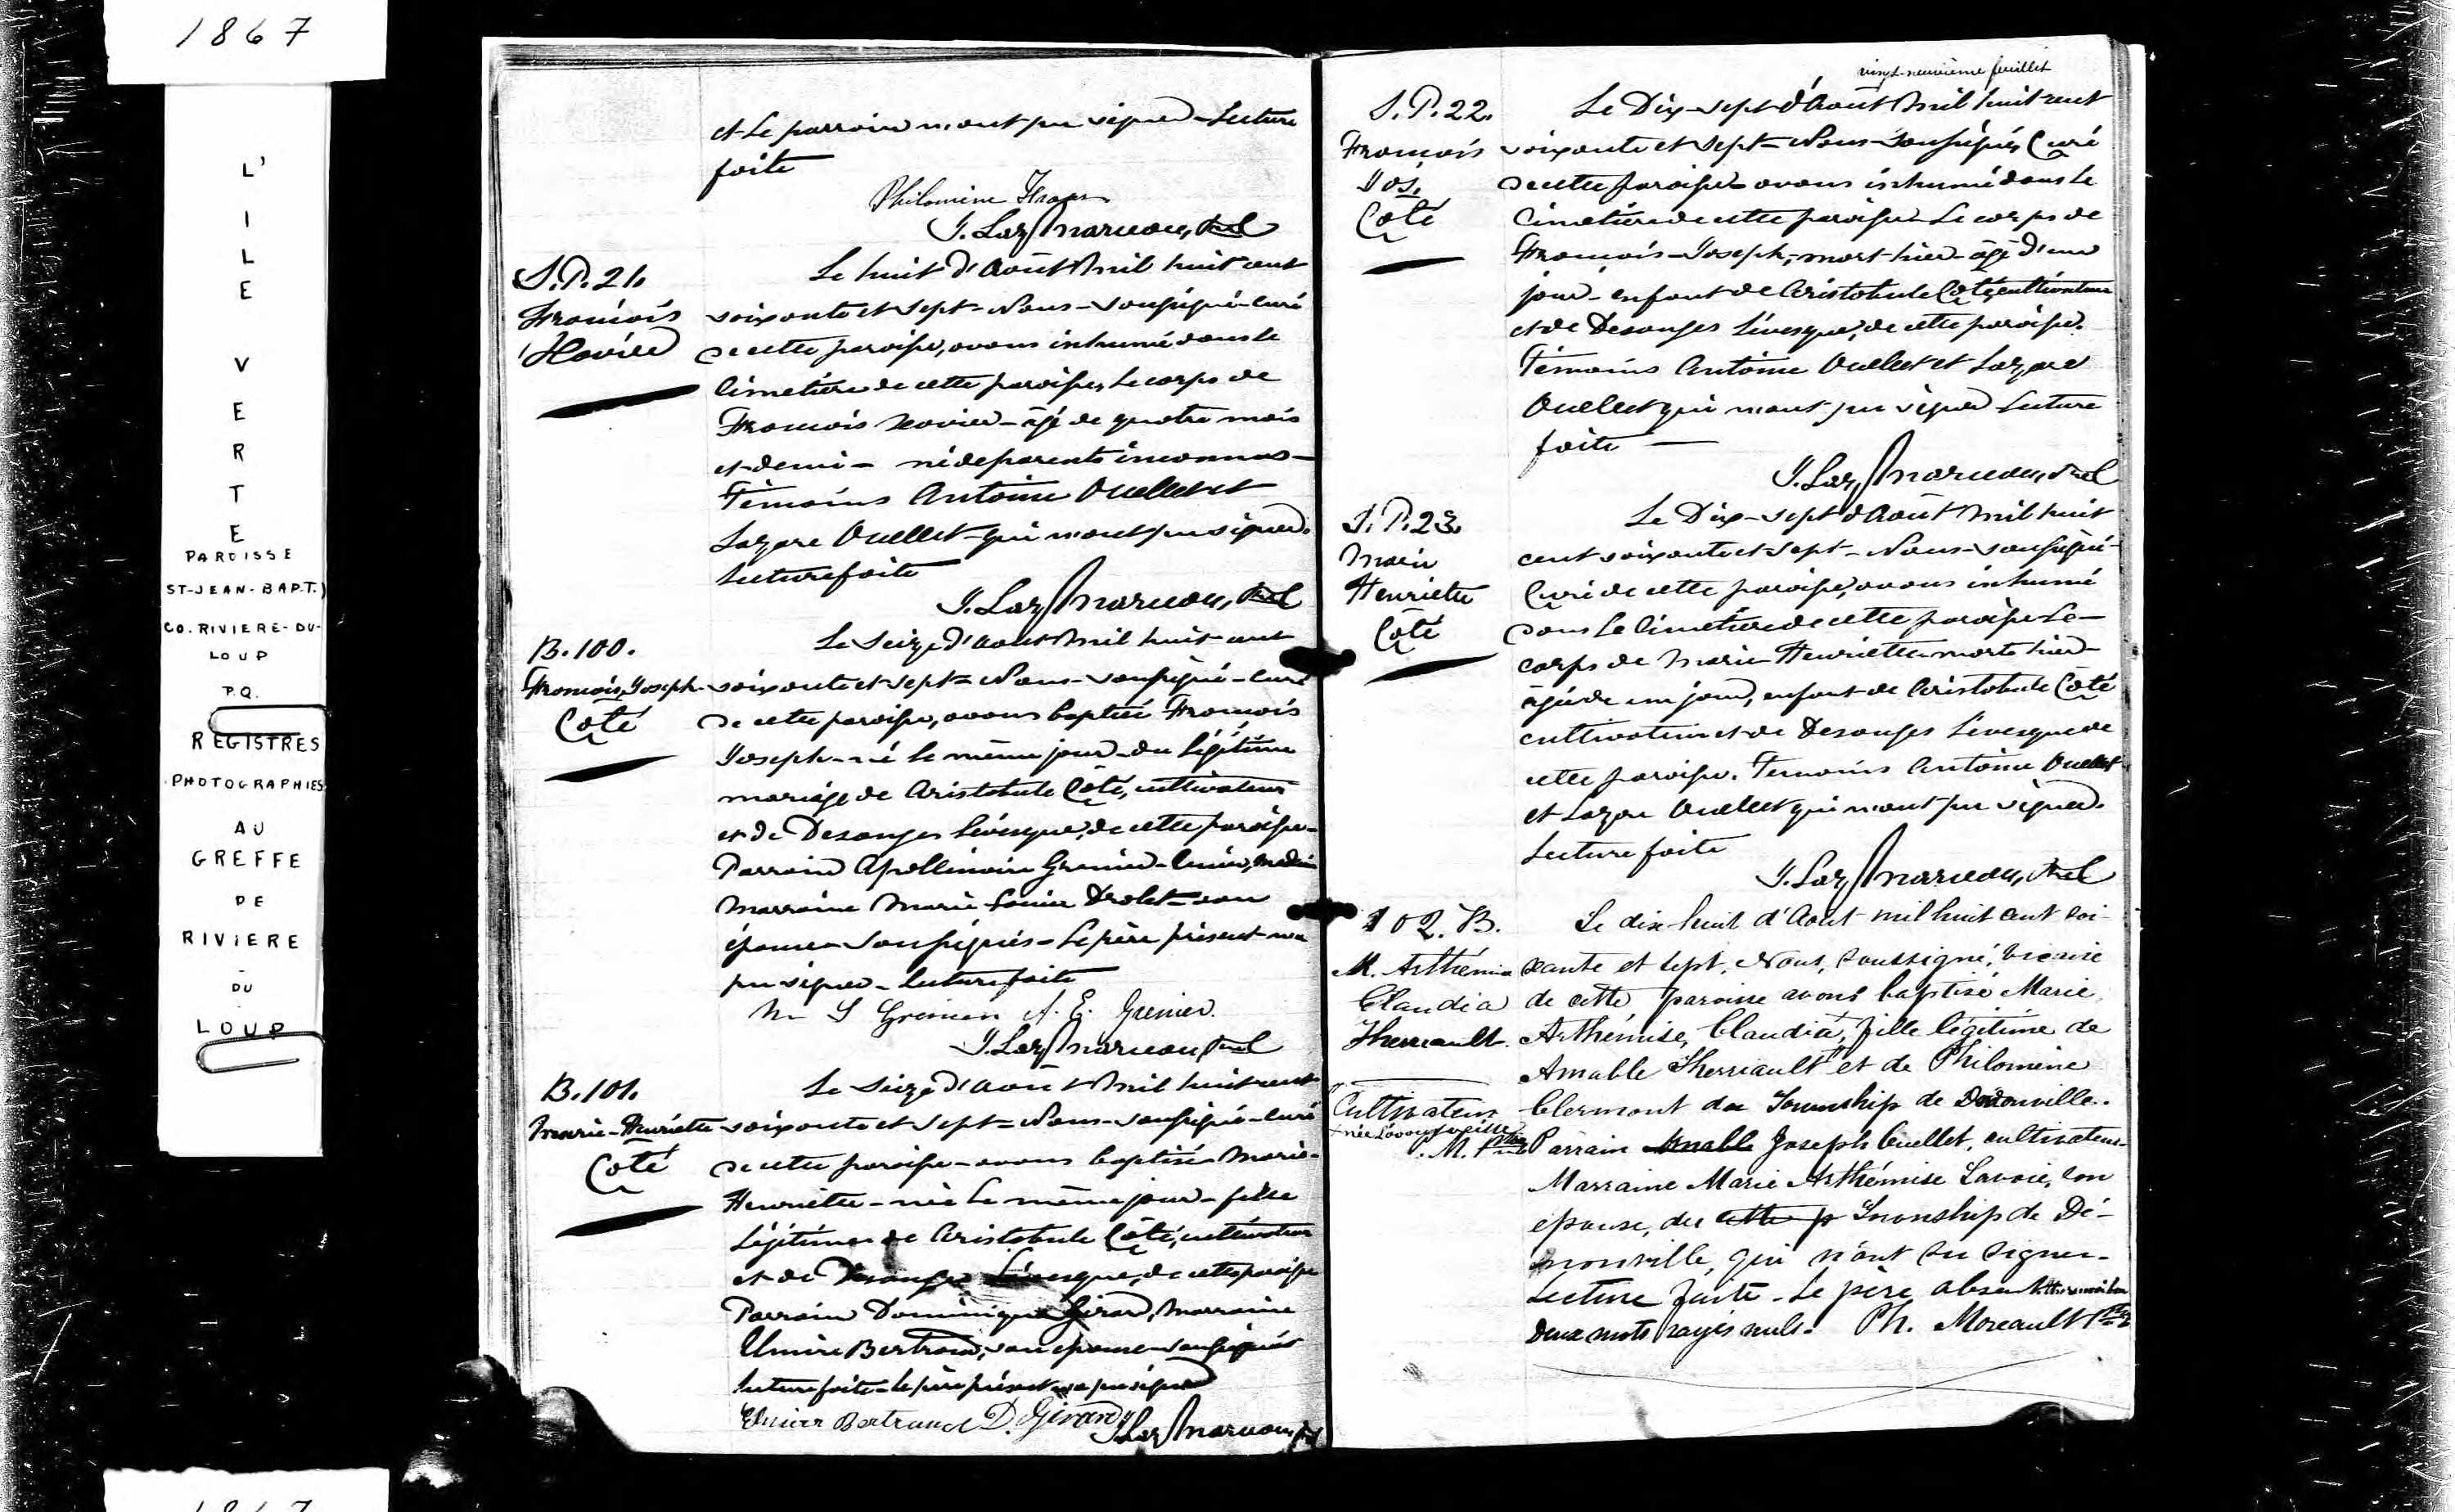 1867
L'
I
L
E
V
E
R
T
E
PAROISSE
ST-JEAN-BAPT.)
CO. RIVIERE-DU-
LOUP
P.Q.
REGISTRES
PHOTOGRAPHIES
AU
GREFFE
DE
RIVIERE
-
DU
-
LOUP
et le parrain n'ont pu signer - Lecture
faite
Philomine
J. Laz Marceau, Ptre
S.P. 21.
François
Xavier
Le huit d'Août Mil huit cent
soixante et sept - Nous - soussigné - curé
de cette paroisse, avons inhumé dans le
Cimetière de cette paroisse, le corps de
François Xavier - âgé de quatre mois
et demi - né de parents inconnus -
Témoins Antoine Ouellet et
Lazare Ouellet - qui n'ont pu signer.
Lecture faite
J. Laz Marceau, Ptre
B. 100.
François Joseph
Coté
Le Seize d'Août Mil huit cent
soixante et sept = Nous - soussigné - curé
de cette paroisse, avons baptisé François
Joseph - né le même jour - du légitime
mariage de Aristobule Coté, cultivateur
et de Desanges Lévesque, de cette paroisse -
Parrain Apollinaire Grenier
Marraine Marie Louise Drolet - son
épouse - soussignés - Le père présent n'a
pu signer - Lecture faite
M S Grenier A. E. Grenier.
J. Laz Marceau Ptre
B. 101.
Marie-Henriette
Coté
Le Seize d'Août Mil huit cent
soixante et sept = Nous - soussigné - curé
de cette paroisse - avons baptisé Marie-
Henriette - née le même jour - fille
légitime de Aristobule Coté, cultivateur
et de Desanges Lévesque, de cette paroisse
Parrain Dominique Girard, Marraine
Elmire Bertrand, son épouse - soussignés
Lecture faite - le père présent n'a pu signer
Elmire Bertrand D. Girard
J Laz Marceau, Ptre
vingt-neuvième feuillet
S.P. 22.
François
Jos.
Coté
Le Dix-sept d'Août Mil huit cent
soixante et sept = Nous - soussigné, Curé
de cette paroisse - avons inhumé dans le
Cimetière de cette paroisse - Le corps de
François - Joseph, - mort hier - âgé d'un
jour - enfant de Aristobule Coté, cultivateur
et de Desanges Lévesque, de cette paroisse.
Témoins Antoine Ouellet et Lazare
Ouellet qui n'ont pu signer Lecture
faite
J. Laz Marceau, Ptre
S.P. 23.
Marie
Henriette
Coté
Le Dix-sept d'Août Mil huit
cent soixante et sept - Nous - soussigné -
Curé de cette paroisse, avons inhumé
dans le Cimetière de cette paroisse Le -
corps de Marie Henriette - morte hier -
âgée de un jour, enfant de Aristobule Coté
cultivateur et de Desanges Lévesque de
cette paroisse. Temoins Antoine Ouellet
et Lazare Ouellet qui n'ont pu signer.
Lecture faite
J. Laz Marceau, Ptre
102. B.
M. Arthémise
Claudia
Therriault.
Cultivateur
P. M. Ptre
Le dix-huit d'Août mil huit cent soi-
xante et sept, Nous, soussigné, vicaire
de cette paroisse avons baptisé Marie
Arthémise, Claudia, fille légitime de
Amable Therriault et de Philomène
Clermont du Township de Dénonville.
Parrain Amable Joseph Ouellet, cultivateur
Marraine Marie Arthémise Lavoie, son
épouse, du cette p Township de Dé-
nonville, qui n'ont su signer -
Lecture faite - Le père absent
Deux mots rayés nuls. Ph. Moreault Ptre
1867